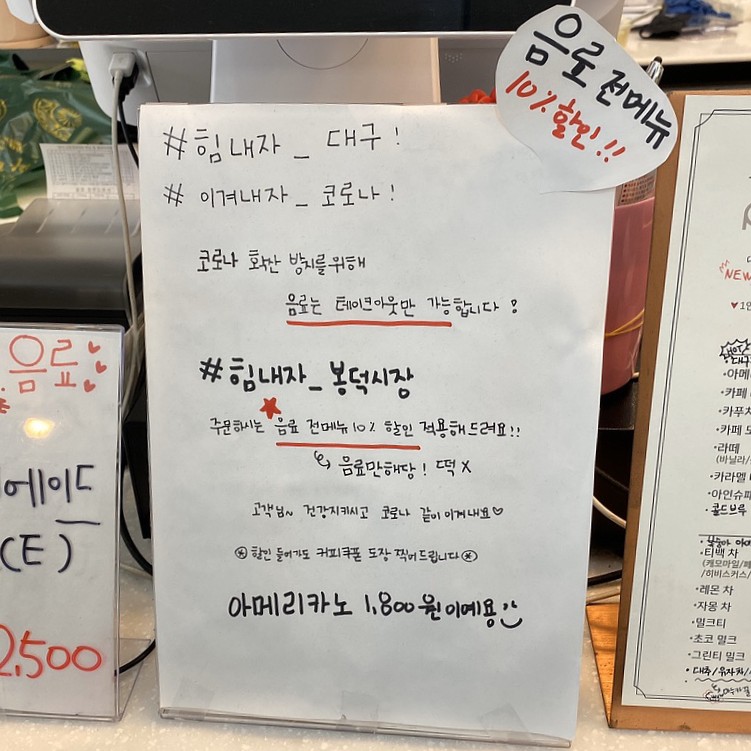 음료 전메뉴
10% 할인!!
#힘내자_ 대구!
# 이겨내자_ 코로나!
코로나 확산 방지를 위해
음료는 테이크아웃만 가능합니다!
#힘내자_봉덕시장
주문하시는 음료 전메뉴 10% 할인 적용해드려요!!
음료만해당! 떡 X
고객님~ 건강지키시고 코로나 같이 이겨내요♡
※할인 들어가도 커피쿠폰 도장 찍어드립니다※
아메리카노 1,800원이에용
음료
에이드
CE)
2,500
NEW
대구
•아메
•카페
•카푸치
•카페 모
•라떼
(바닐라/
•카라멜
•아인슈페
•콜드브루
•티백 차
(캐모마일/페
/히비스커스/
•레몬 차
•자몽 차
•밀크티
•초코 밀크
•그린티 밀크
•대추/유자차/